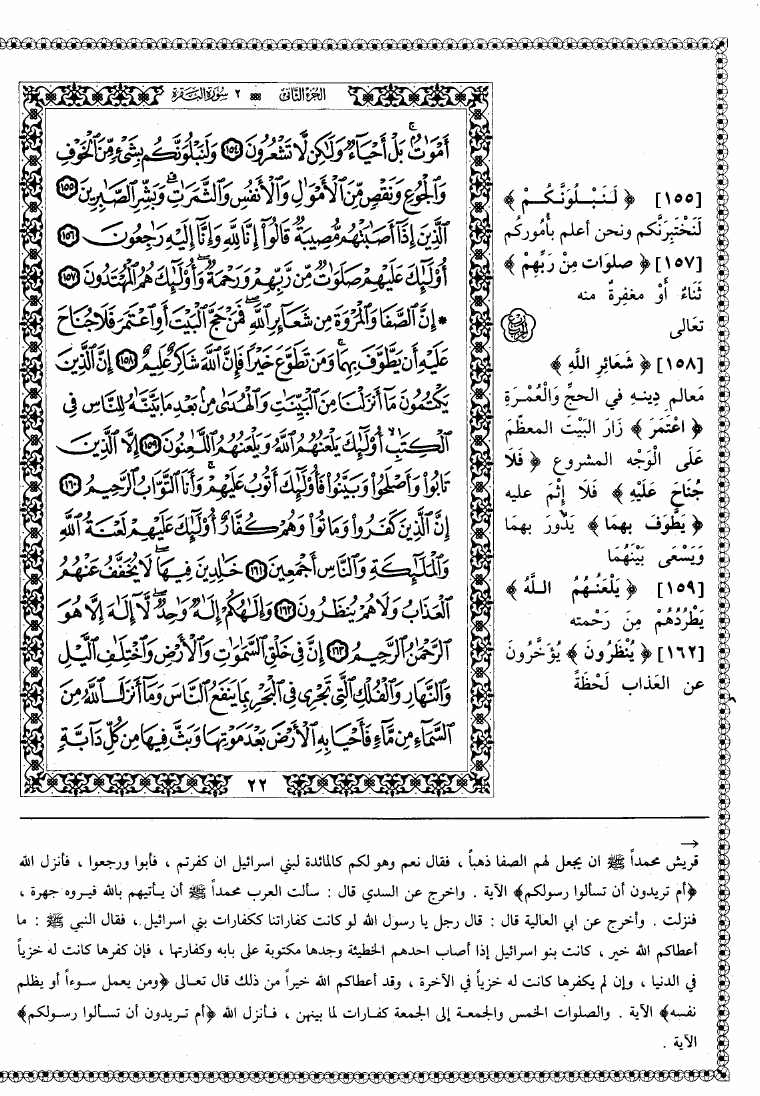 الجزء الثاني ٢ سورة البقرة
أَمْوَٰتٌۢ بَلْ أَحْيَآءٌ وَلَٰكِن لَّا تَشْعُرُونَ ١٥٤ وَلَنَبْلُوَنَّكُم بِشَىْءٍ مِّنَ ٱلْخَوْفِ
وَٱلْجُوعِ وَنَقْصٍ مِّنَ ٱلْأَمْوَٰلِ وَٱلْأَنفُسِ وَٱلثَّمَرَٰتِ ۗ وَبَشِّرِ ٱلصَّٰبِرِينَ ١٥٥
ٱلَّذِينَ إِذَآ أَصَٰبَتْهُم مُّصِيبَةٌ قَالُوٓا۟ إِنَّا لِلَّهِ وَإِنَّآ إِلَيْهِ رَٰجِعُونَ ١٥٦
أُو۟لَٰٓئِكَ عَلَيْهِمْ صَلَوَٰتٌ مِّن رَّبِّهِمْ وَرَحْمَةٌ ۖ وَأُو۟لَٰٓئِكَ هُمُ ٱلْمُهْتَدُونَ ١٥٧
* إِنَّ ٱلصَّفَا وَٱلْمَرْوَةَ مِن شَعَآئِرِ ٱللَّهِ ۖ فَمَنْ حَجَّ ٱلْبَيْتَ أَوِ ٱعْتَمَرَ فَلَا جُنَاحَ
عَلَيْهِ أَن يَطَّوَّفَ بِهِمَا ۚ وَمَن تَطَوَّعَ خَيْرًا فَإِنَّ ٱللَّهَ شَاكِرٌ عَلِيمٌ ١٥٨ إِنَّ ٱلَّذِينَ
يَكْتُمُونَ مَآ أَنزَلْنَا مِنَ ٱلْبَيِّنَٰتِ وَٱلْهُدَىٰ مِنۢ بَعْدِ مَا بَيَّنَّٰهُ لِلنَّاسِ فِى
ٱلْكِتَٰبِ ۙ أُو۟لَٰٓئِكَ يَلْعَنُهُمُ ٱللَّهُ وَيَلْعَنُهُمُ ٱللَّٰعِنُونَ ١٥٩ إِلَّا ٱلَّذِينَ
تَابُوا۟ وَأَصْلَحُوا۟ وَبَيَّنُوا۟ فَأُو۟لَٰٓئِكَ أَتُوبُ عَلَيْهِمْ ۚ وَأَنَا ٱلتَّوَّابُ ٱلرَّحِيمُ ١٦٠
إِنَّ ٱلَّذِينَ كَفَرُوا۟ وَمَاتُوا۟ وَهُمْ كُفَّارٌ أُو۟لَٰٓئِكَ عَلَيْهِمْ لَعْنَةُ ٱللَّهِ
وَٱلْمَلَٰٓئِكَةِ وَٱلنَّاسِ أَجْمَعِينَ ١٦١ خَٰلِدِينَ فِيهَا ۖ لَا يُخَفَّفُ عَنْهُمُ
ٱلْعَذَابُ وَلَا هُمْ يُنظَرُونَ ١٦٢ وَإِلَٰهُكُمْ إِلَٰهٌ وَٰحِدٌ ۖ لَّآ إِلَٰهَ إِلَّا هُوَ
ٱلرَّحْمَٰنُ ٱلرَّحِيمُ ١٦٣ إِنَّ فِى خَلْقِ ٱلسَّمَٰوَٰتِ وَٱلْأَرْضِ وَٱخْتِلَٰفِ ٱلَّيْلِ
وَٱلنَّهَارِ وَٱلْفُلْكِ ٱلَّتِى تَجْرِى فِى ٱلْبَحْرِ بِمَا يَنفَعُ ٱلنَّاسَ وَمَآ أَنزَلَ ٱللَّهُ مِنَ
ٱلسَّمَآءِ مِن مَّآءٍ فَأَحْيَا بِهِ ٱلْأَرْضَ بَعْدَ مَوْتِهَا وَبَثَّ فِيهَا مِن كُلِّ دَآبَّةٍ
٢٢
[١٥٥] ﴿ لَنَبْلُوَنَّكُمْ ﴾
لَنَخْتَبِرَنَّكم ونحن أعلم بأُموركم
[١٥٧] ﴿ صلوات مِنْ رَبِّهِمْ ﴾
ثَنَاءٌ أَوْ مغفِرةٌ منه
تعَالى
[١٥٨] ﴿ شَعَائِرِ اللَّهِ ﴾
مَعالمِ دِينِهِ في الحجِّ وَالْعُمْرَةِ
﴿ اعْتَمَرَ ﴾ زَارَ البَيْتَ المعظّم
عَلَى الْوَجْه المشروع ﴿ فَلَا
جُنَاحَ عَلَيْهِ ﴾ فَلَا إِثْمَ عليه
﴿ يَطَّوَّفَ بهِمَا ﴾ يَدُورَ بهِمَا
وَيَسْعَى بَيْنَهُمَا
[١٥٩] ﴿ يَلْعَنُهُمُ اللَّهُ ﴾
يَطْرُدُهُمْ مِنَ رَحْمته
[١٦٢] ﴿ يُنْظَرُونَ ﴾ يُؤَخَّرُونَ
عن العَذاب لَحْظَةً
قريش محمداً ﷺ ان يجعل لهم الصفا ذهباً ، فقال نعم وهو لكم كالمائدة لبني اسرائيل ان كفرتم ، فأبوا ورجعوا ، فأنزل الله
﴿أم تريدون أن تسألوا رسولكم﴾ الآية . واخرج عن السدي قال : سألت العرب محمداً ﷺ أن يأتيهم بالله فيروه جهرة ،
فنزلت . وأخرج عن ابي العالية قال : قال رجل يا رسول الله لو كانت كفاراتنا ككفارات بني اسرائيل ، فقال النبي ﷺ : ما
أعطاكم الله خير ، كانت بنو اسرائيل إذا أصاب احدهم الخطيئة وجدها مكتوبة على بابه وكفارتها ، فإن كفرها كانت له خزياً
في الدنيا ، وإن لم يكفرها كانت له خزياً في الآخرة ، وقد أعطاكم الله خيراً من ذلك قال تعالى ﴿ومن يعمل سوءاً أو يظلم
نفسه﴾ الآية . والصلوات الخمس والجمعة إلى الجمعة كفارات لما بينهن ، فأنزل الله ﴿أم تريدون أن تسألوا رسولكم﴾
الآية .